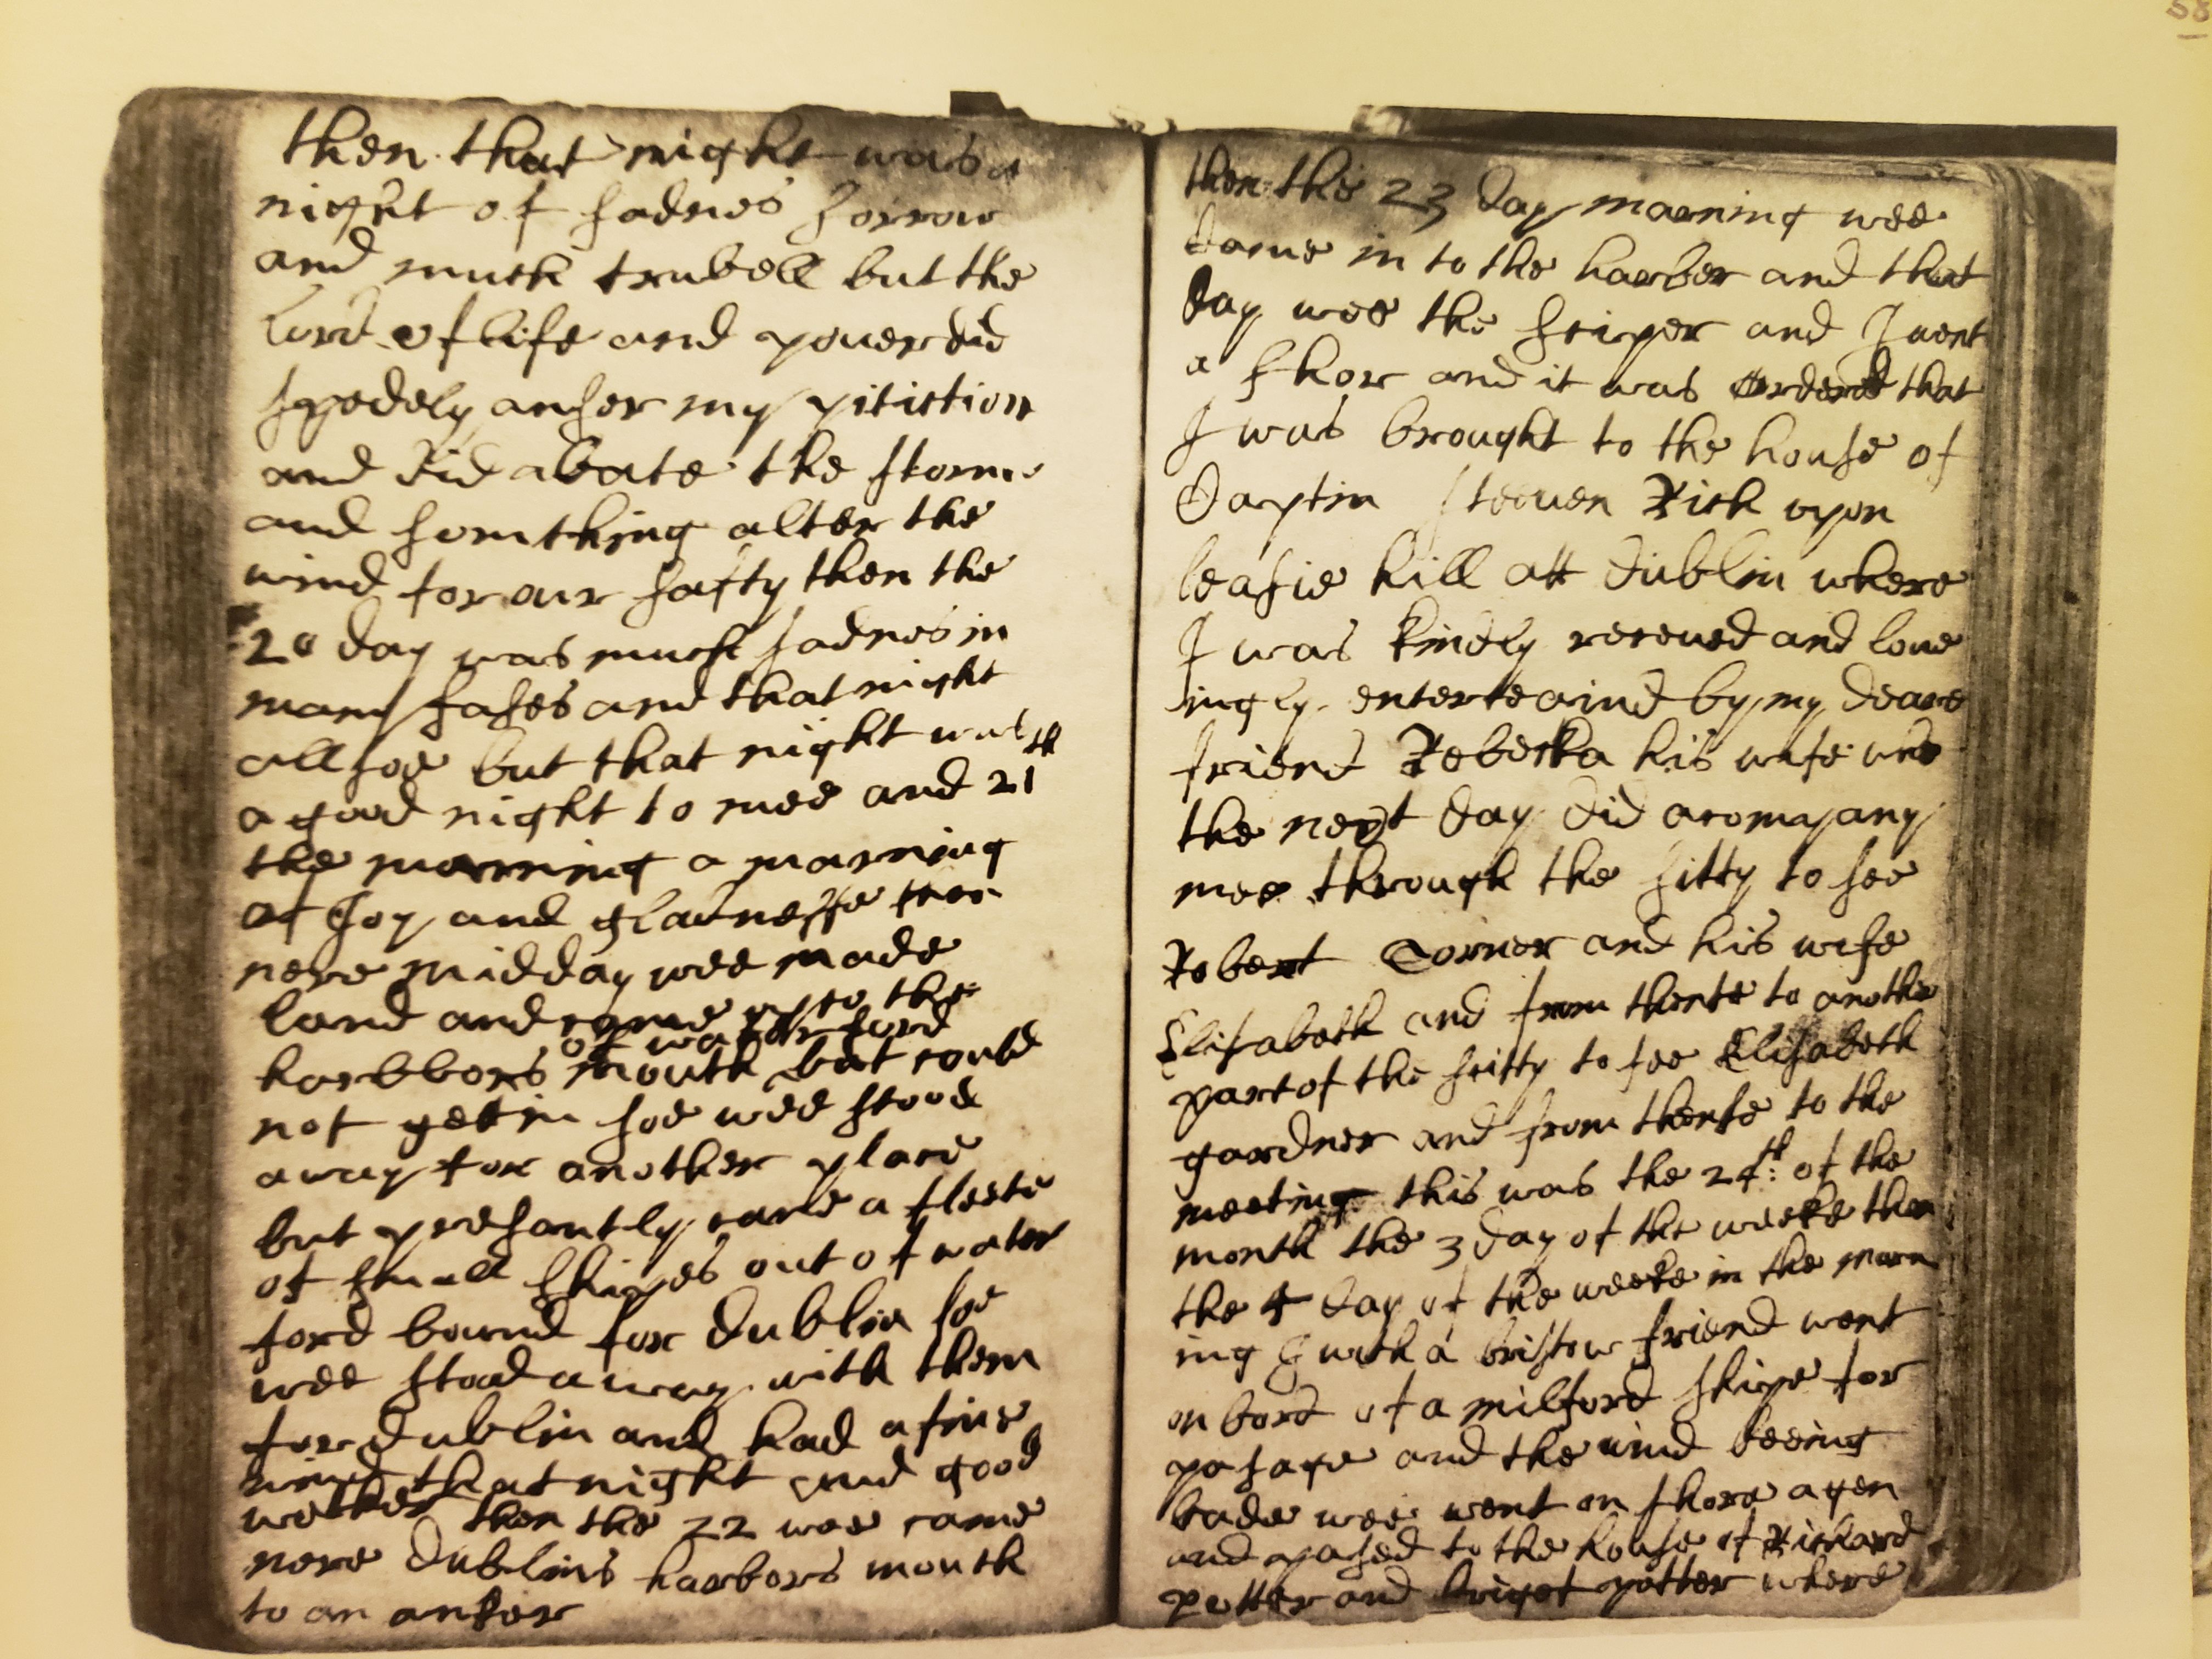 58
then that night was a
night of sadnes sorrow
and much trubell but the
lord of life and power did
spedely anser my pitiction
and did abate the storme
and somthing alter the
wind for our safty then the
20 day was much sadnes in
many fases and that night
all soe but that night was
a good night to mee and 21th
the morning a marning
of Joy and gladnesse then
nere midday wee made
land and came up to the
harbbors mouth of waterford but could
not get in soe wee stood
away for another place
but presantly came a fleete
of small shipes out of water
ford bound for dublin soe
wee stood away with them
for dublin and had a fine
wind that night and good
wether then the 22 wee came
nere dublins harbors mouth
to an anker
then the 23 day marning wee
came in to the harber and that
day wee the sciper and I went
a shor and it was Ordered that
I was brought to the house of
Captin steeven Rich upon
leasie hill att dublin where
I was kindly receued and loue
ingly enterteained by my deare
friend Rebecka his wife who
the next day did acompany
mee through the sitty to see
Robert Corner and his wife
Elisabeth and from thence to another
part of the scitty to see Elisabeth
gardner and from thense to the
meeting this was the 24th: of the
month the 3 day of the weeke then
the 4 day of the weeke in the morn
ing I with a bristow friend went
on bord of a milford shipe for
pasage and the wind beeing
bade wee went on shore agen
and pased to the house of Richard
potter and briget potter where